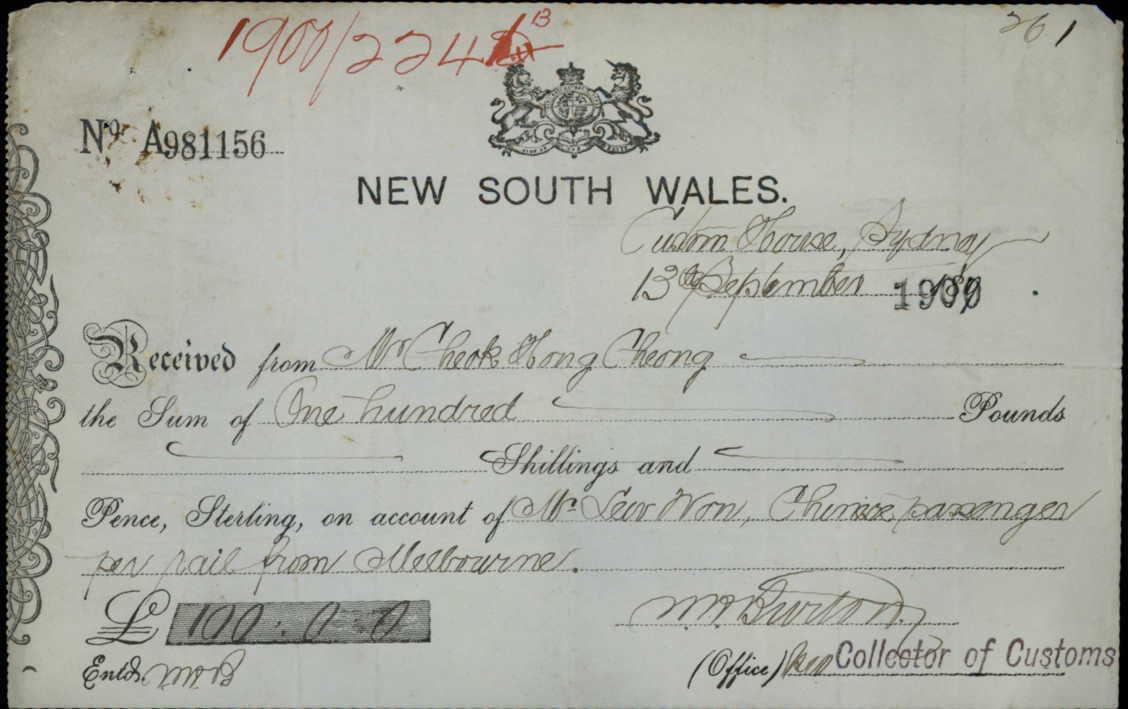 1900/2242 B
261
No. A981156
NEW SOUTH WALES.
Custom House, Sydney
13th September 1900
Received from Mr Cheok Hong Cheong
the Sum of One hundred Pounds
Shillings and
Pence, Sterling, on account of Mr Won, Chinese passenger
per rail from Melbourne.
£ 100 : 0 : 0
W.H. Burton
Entd. WHB
(Office) Collector of Customs